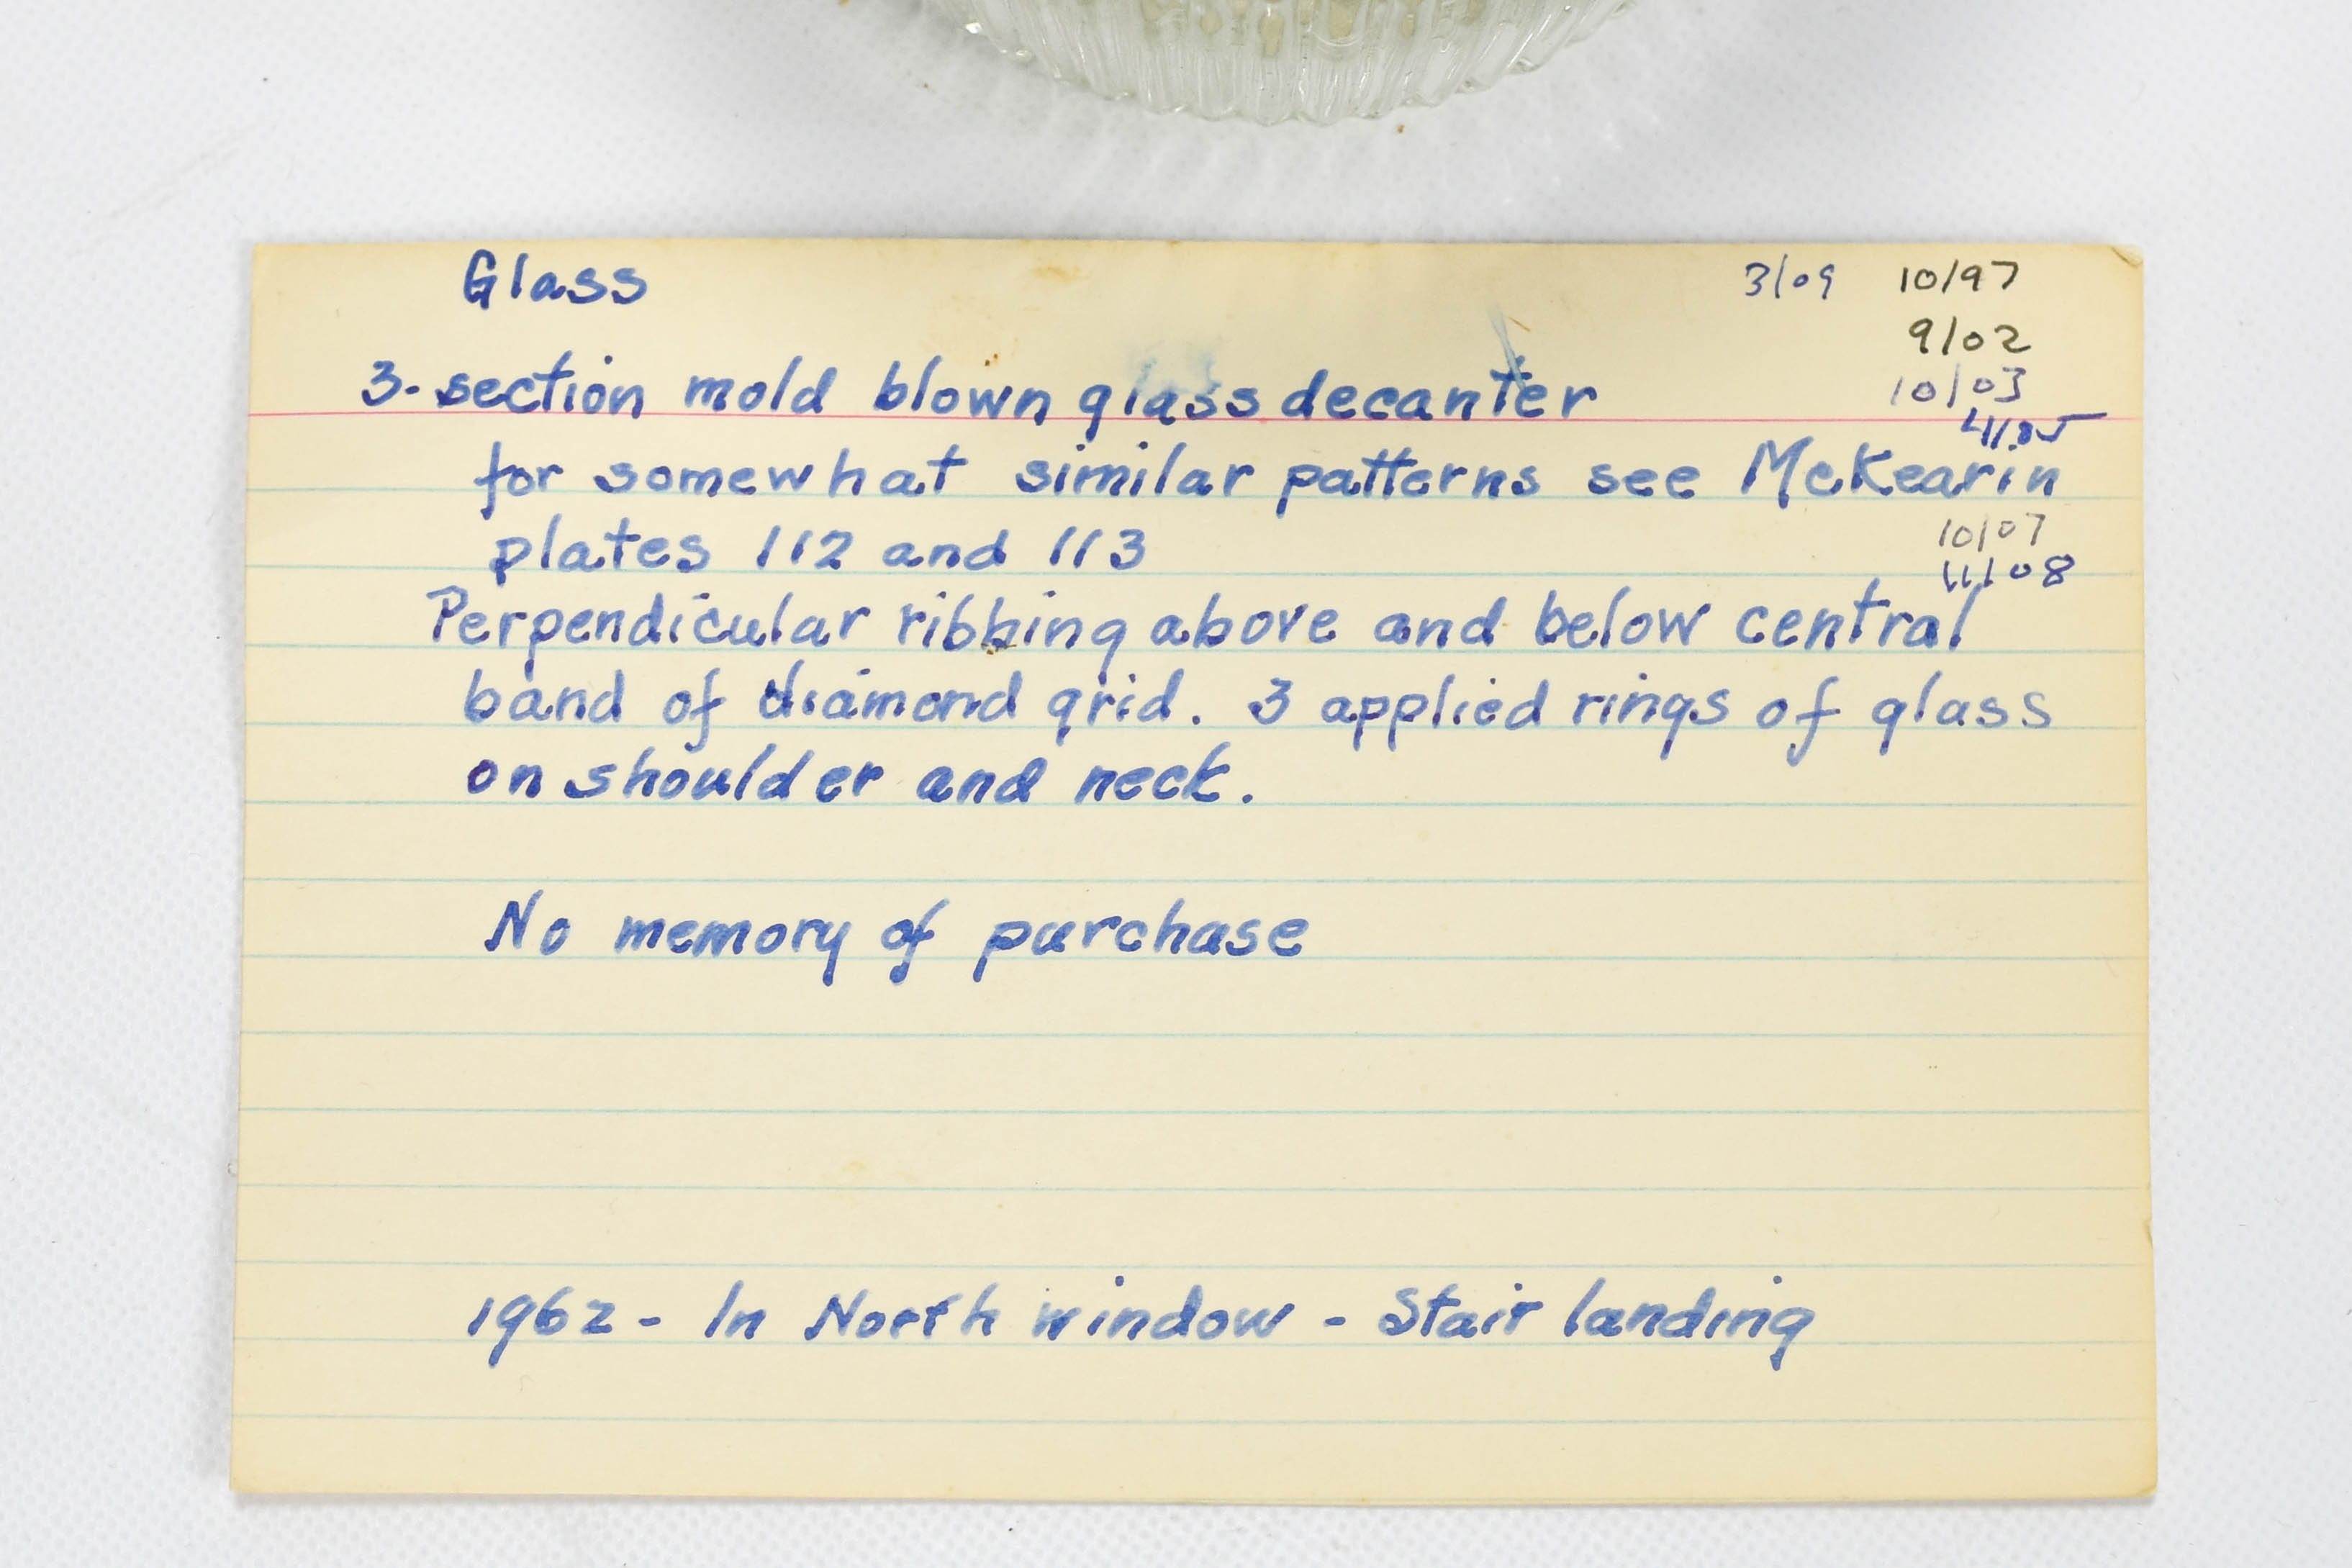 Glass
3/09 10/97
9/02
10/03
3-section mold blown glass decanter
for somewhat similar patterns see McKearin
plates 112 and 113
10/07
11/08
Perpendicular ribbing above and below central
band of diamond grid. 3 applied rings of glass
on shoulder and neck.
No memory of purchase
1962 - In North window - Stair landing